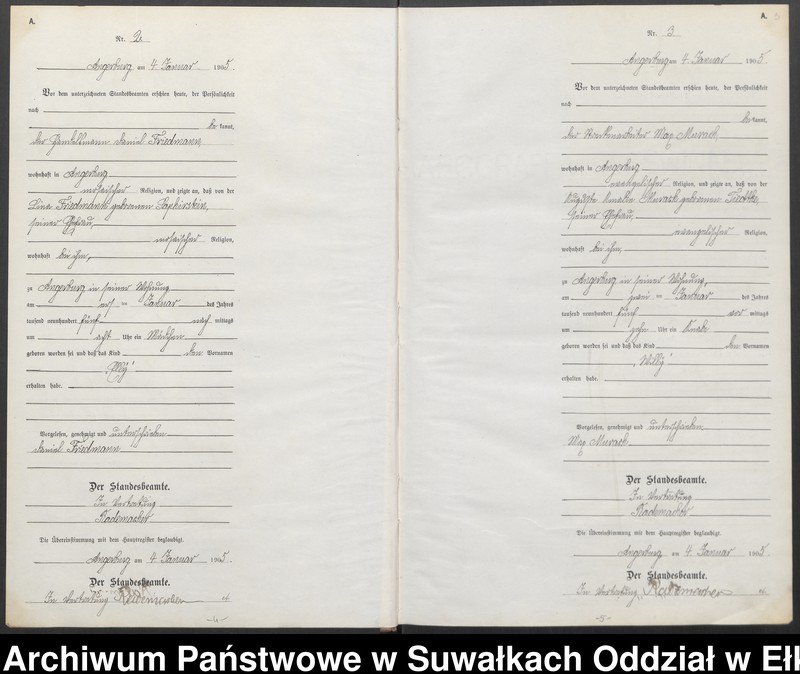 A.
Nr. 2
Angerburg am 4 Januar 1905.
Vor dem unterzeichneten Standesbeamten erschien heute, der Persönlichkeit
nach
be kannt,
der Handelsmann Daniel Friedmann
wohnhaft in Angerburg
mosaischer Religion, und zeigte an, daß von der
Lina Friedmann geborenen
seiner Ehefrau,
mosaischer Religion,
wohnhaft bei ihm,
zu Angerburg in seiner Wohnung
am Januar des Jahres
tausend neunhundert fünf nach mittags
um acht Uhr ein Mädchen
geboren worden sei und daß das Kind den Vornamen
erhalten habe.
Vorgelesen, genehmigt und unterschrieben
Daniel Friedmann
Der Standesbeamte.
In Vertretung
Rademacher
Die Übereinstimmung mit dem Hauptregister beglaubigt.
Angerburg am 4 Januar 1905.
Der Standesbeamte.
In Vertretung Rademacher
-4-
A.
Nr. 3
Angerburg am 4. Januar 1905.
Vor dem unterzeichneten Standesbeamten erschien heute, der Persönlichkeit
nach
be kannt,
der Max Murach
wohnhaft in Angerburg
evangelischer Religion, und zeigte an, daß von der
Auguste Amalie Murach geborenen
seiner Ehefrau,
evangelischer Religion,
wohnhaft bei ihm,
zu Angerburg in seiner Wohnung,
am zwei ten Januar des Jahres
tausend neunhundert fünf vor mittags
um zehn Uhr ein Knabe
geboren worden sei und daß das Kind den Vornamen
„Willy“
erhalten habe.
Vorgelesen, genehmigt und unterschrieben
Max Murach
Der Standesbeamte.
In Vertretung
Rademacher
Die Übereinstimmung mit dem Hauptregister beglaubigt.
Angerburg am 4. Januar 1905.
Der Standesbeamte.
In Vertretung Rademacher
-5-
Archiwum Państwowe w Suwałkach Oddział w Ełk